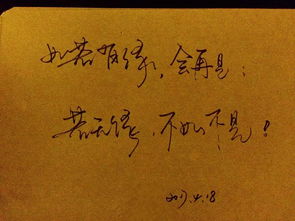 如若有缘，会再见；
若无缘，不如不见！
2017.4.18